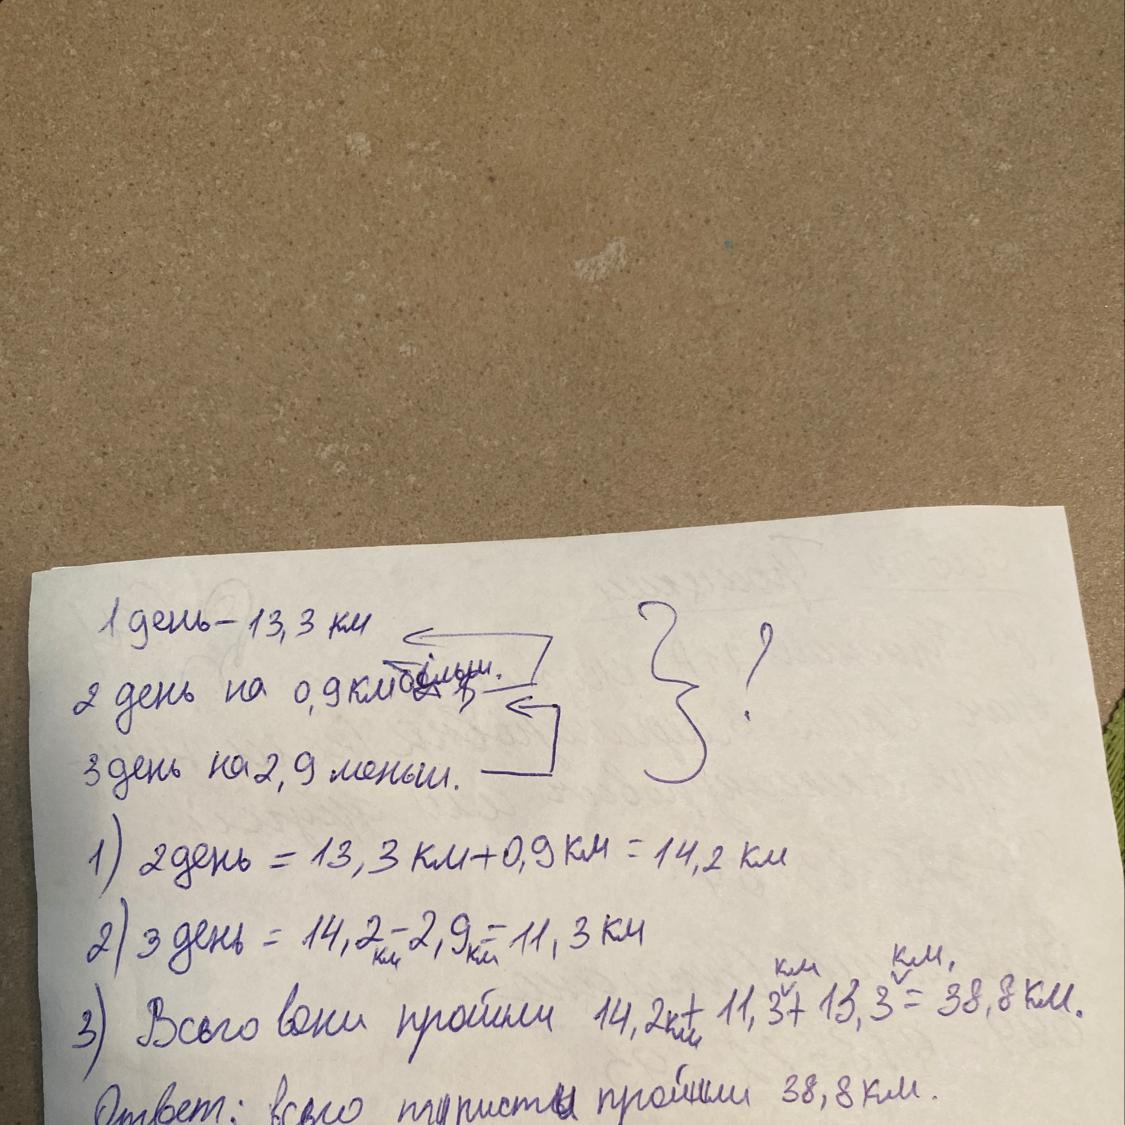 1 день - 13,3 км
2 день на 0,9 км більш.
3 день на 2,9 меньш.
?
1) 2 день = 13,3 км + 0,9 км = 14,2 км
2) 3 день = 14,2 км - 2,9 км = 11,3 км
3) Всього вони пройшли 14,2 км + 11,3 км + 13,3 км = 38,8 км.
Ответ: всього туристы пройшли 38,8 км.